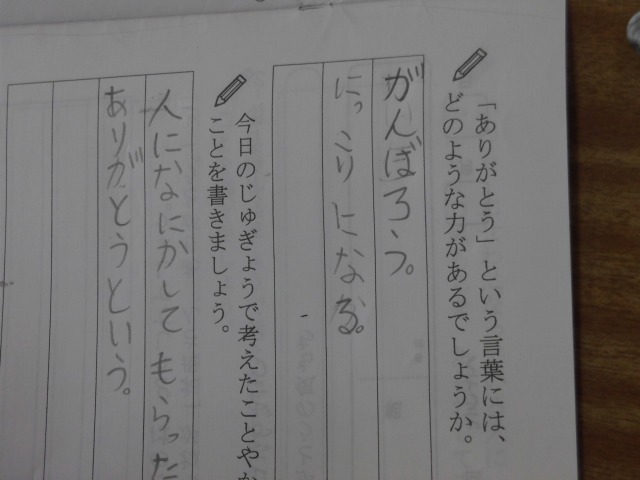 「ありがとう」という言葉には、
どのような力があるでしょうか。
がんばろう。
にっこりになる。
今日のじゅぎょうで考えたことやか
ことを書きましょう。
人になにかしてもらった
ありがとうという。